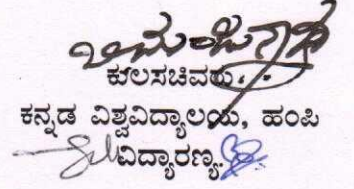 ಕುಲಸಚಿವರು
ಕನ್ನಡ ವಿಶ್ವವಿದ್ಯಾಲಯ, ಹಂಪಿ
ವಿದ್ಯಾರಣ್ಯ.